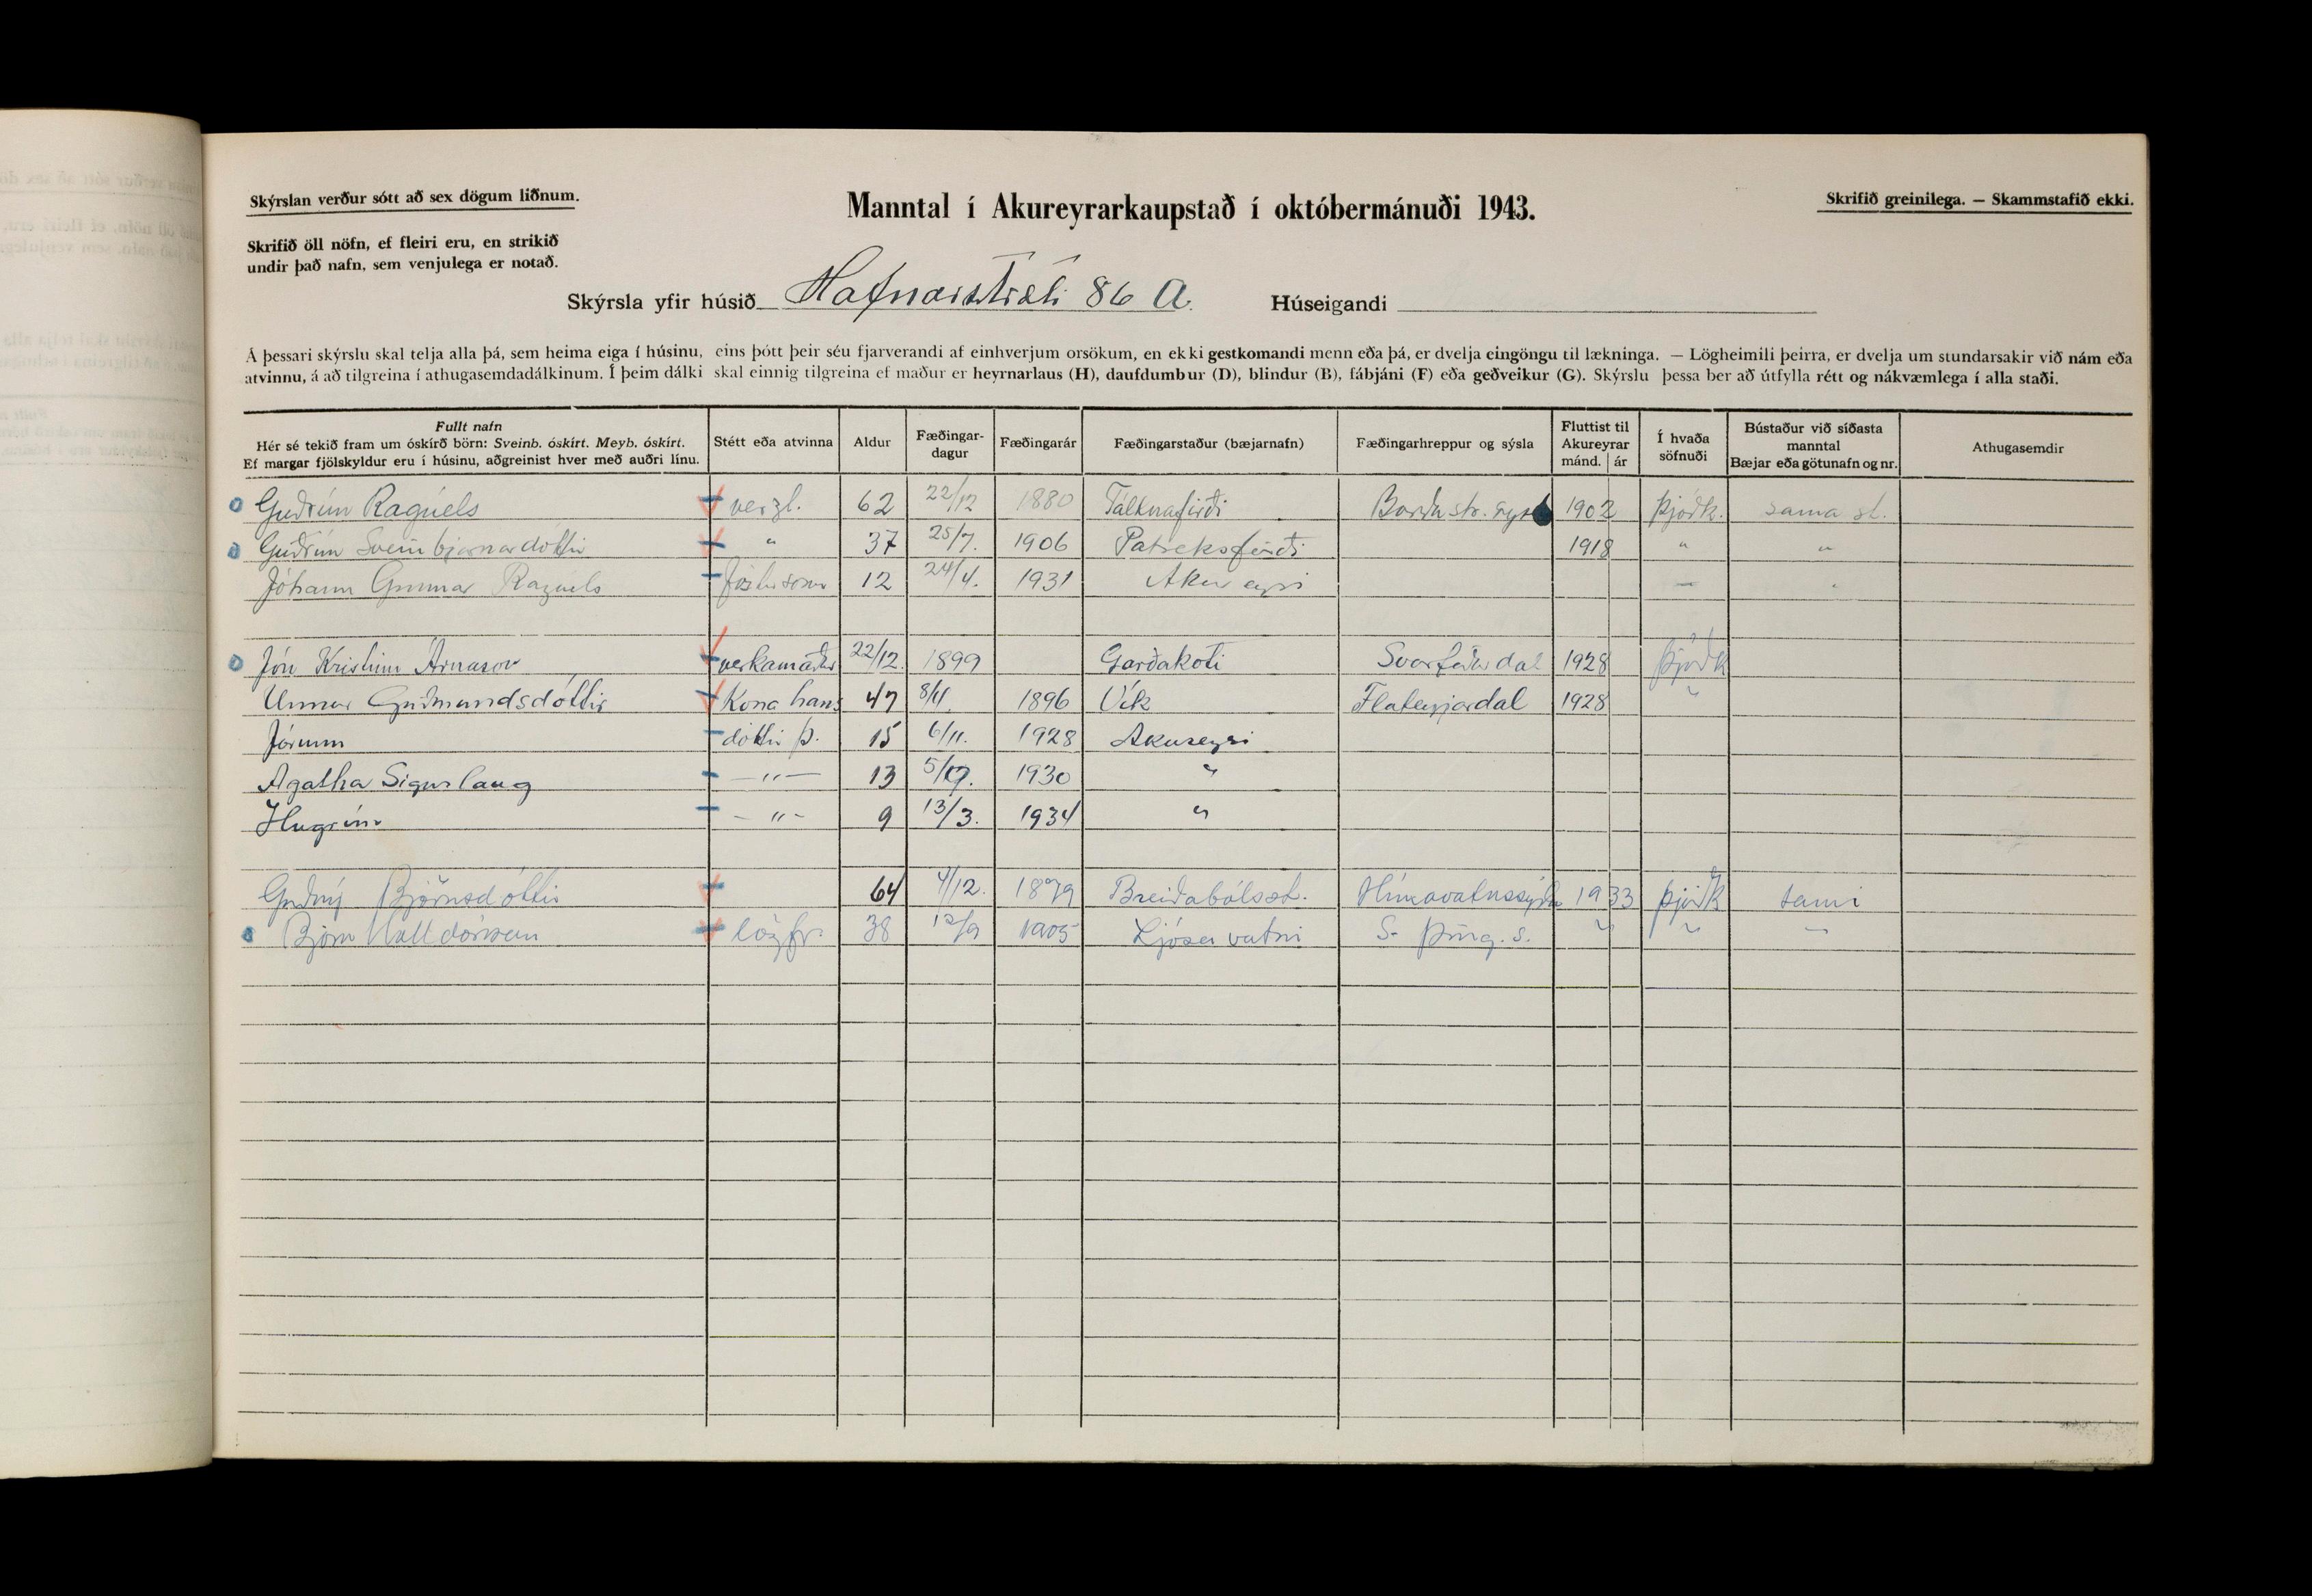 Skýrslan verður sótt að sex dögum liðnum.
Manntal í Akureyrarkaupstað í októbermánuði 1943.
Skrifið greinilega. — Skammstafið ekki.
Skrifið öll nöfn, ef fleiri eru, en strikið
undir það nafn, sem venjulega er notað.
Skýrsla yfir húsið Hafnarstræti 86 A. Húseigandi
Á þessari skýrslu skal telja alla þá, sem heima eiga í húsinu, eins þótt þeir séu fjarverandi af einhverjum orsökum, en ekki gestkomandi menn eða þá, er dvelja eingöngu til lækninga. — Lögheimili þeirra, er dvelja um stundarsakir við nám eða
atvinnu, á að tilgreina í athugasemdadálkinum. Í þeim dálki skal einnig tilgreina ef maður er heyrnarlaus (H), daufdumbur (D), blindur (B), fábjáni (F) eða geðveikur (G). Skýrslu þessa ber að útfylla rétt og nákvæmlega í alla staði.
Fullt nafn
Hér sé tekið fram um óskírð börn: Sveinb. óskírt. Meyb. óskírt.
Ef margar fjölskyldur eru í húsinu, aðgreinist hver með auðri línu.
Stétt eða atvinna
Aldur
Fæðingar-
dagur
Fæðingarár
Fæðingarstaður (bæjarnafn)
Fæðingarhreppur og sýsla
Fluttist til
Akureyrar
mánd. ár
Í hvaða
söfnuði
Bústaður við síðasta
manntal
Bæjar eða götunafn og nr.
Athugasemdir
Guðrún Ragúels verzl. 62 22/12 1880 Tálknafirði Barðastr. sýsl 1902 Þjóðk. sama st.
Guðrún Sveinbjarnardóttir " 37 25/7. 1906 Patreksfirði 1918 " "
Jóhann Gunnar Ragúels fósturson 12 24/4. 1931 Akureyri — "
Jón Kristinn Árnason verkamaður 22/12. 1899 Garðakoti Svarfaðardal 1928 Þjóðk
Unnur Guðmundsdóttir Kona hans 47 8/11. 1896 Vík Flateyjardal 1928 "
Jórunn dóttir þ. 15 6/11. 1928 Akureyri
Agatha Sigurlaug —"— 13 1930 "
Hugrún —"— 9 13/3. 1934 "
Guðný Björnsdóttir 64 4/12. 1879 Breiðabólsst. Húnavatnssýslu 1933 Þjóðk sami
Björn Halldórsson lögfr. 38 1905 Ljósavatni S- Þing. s. " " —